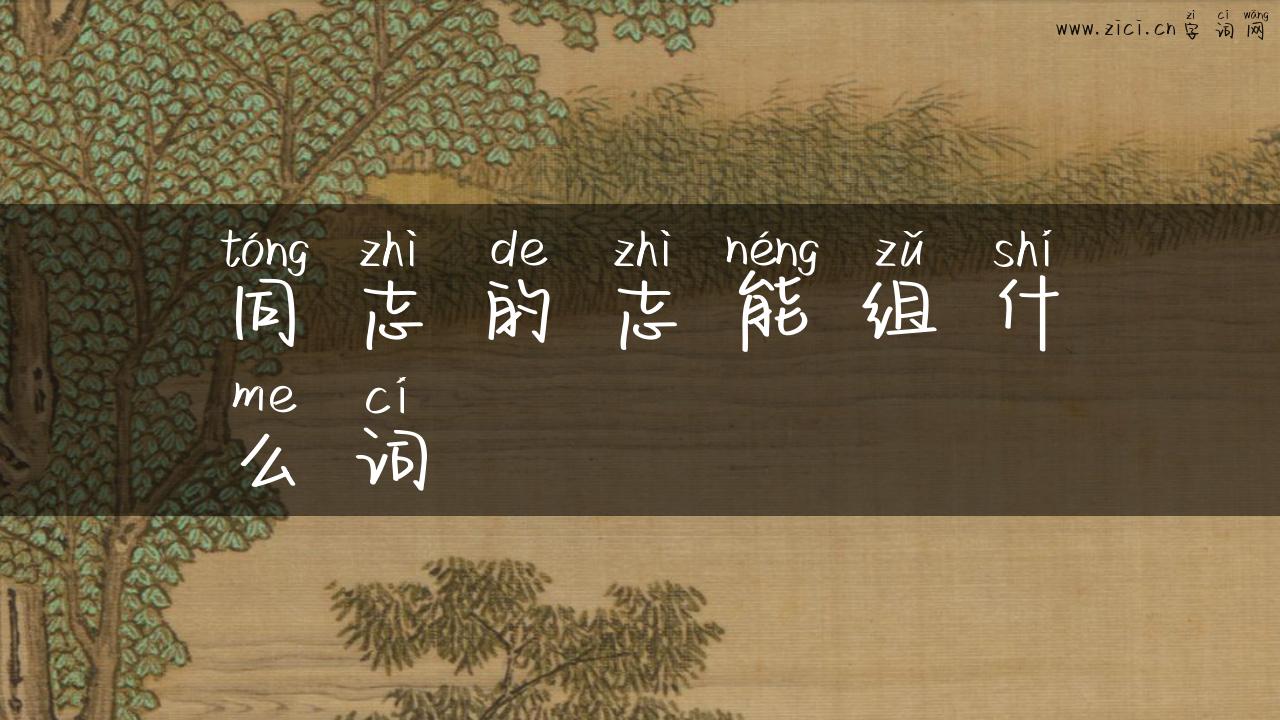 zì cí wǎng
www.zici.cn 字词网
tóng zhì de zhì néng zǔ shí
同志的志能组什
me cí
么词